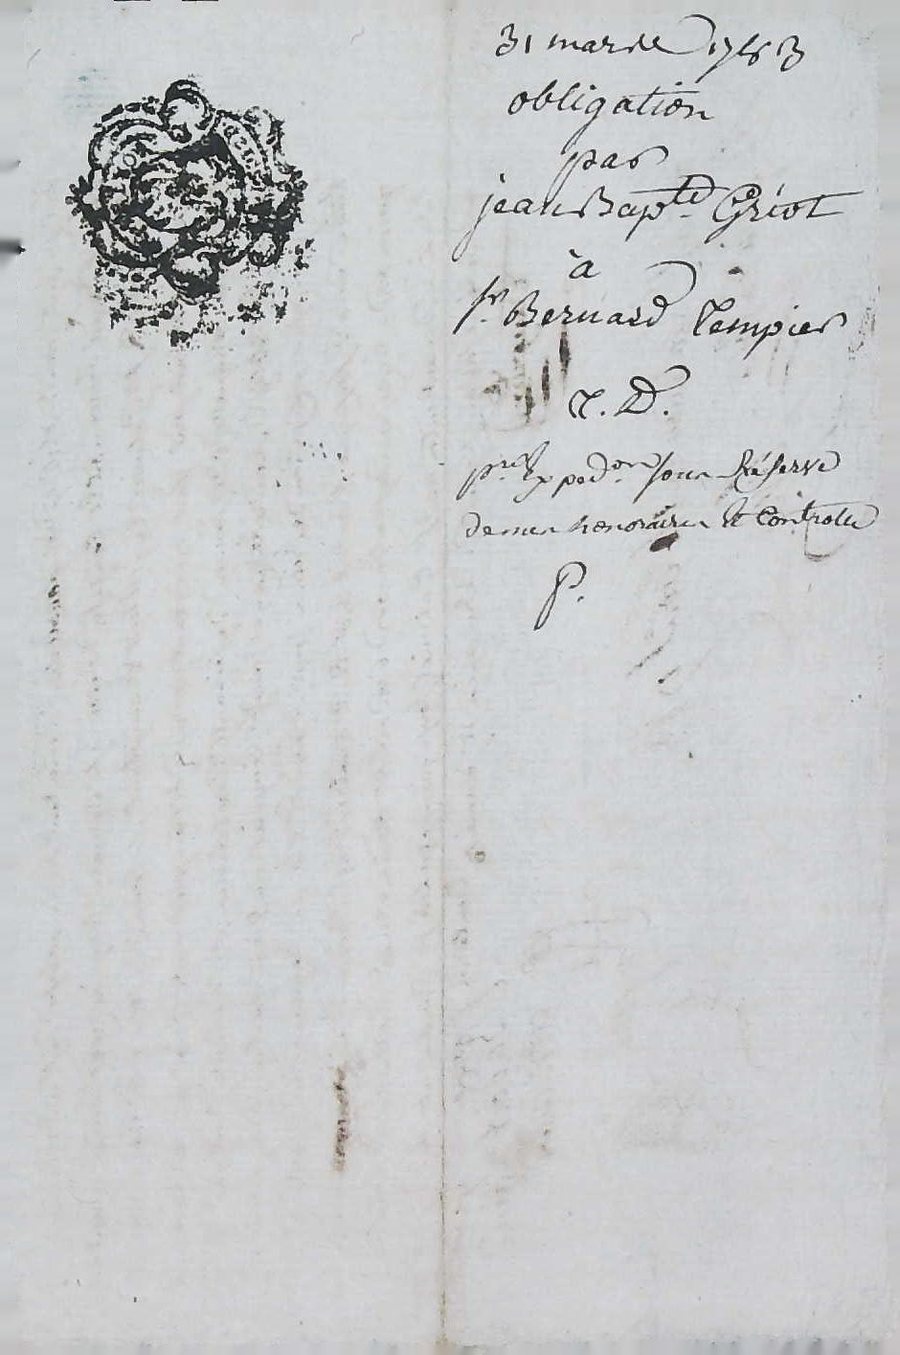 31 mars 1783
obligation
par
jean Bap.te Griot
à
Sr. Bernard Tempier
N. D.
pre. Exped.on sous Réserve
de mes honoraires et Controlle
P.